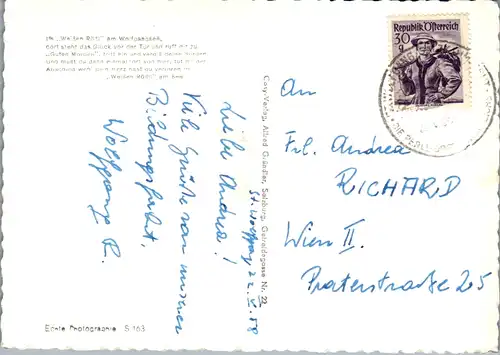 Im „Weißen Rößl“ am Wolfgangsee,
dort steht das Glück vor der Tür und ruft dir zu:
„Guten Morgen“, tritt ein und vergiß deine Sorgen.
Und mußt du dann einmal fort von hier, tut dir der
Abschied weh, dein Herz, das hast du verloren im
„Weißen Rößl“ am See.
St. Wolfgang, 22. V. 58
Liebe Andrea!
Viele Grüße von unserer
Bildungsfahrt,
Wolfgang R.
Echte Photographie S 163
Cosy-Verlag, Alfred Gründler, Salzburg, Getreidegasse Nr. 22
Republik Österreich
30 g
An
Frl. Andrea
RICHARD
Wien II.
Praterstraße 25